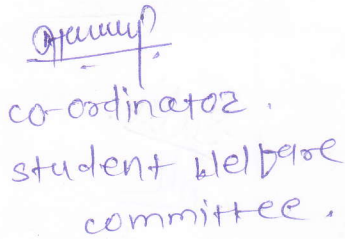 co-ordinator.
student welfare
committee.